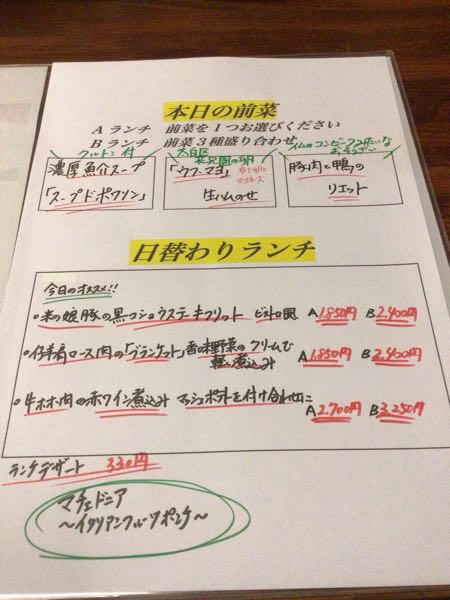 本日の前菜
Aランチ 前菜を1つお選びください
Bランチ 前菜3種盛り合わせ
クルトン付
濃厚魚介スープ
「スープドポワソン」
長兵衛の卵
「ウフ・マヨ」
ゆで卵に
マヨネーズ
生ハムのせ
豚肉と鴨の
リエット
日替わりランチ
今日のオススメ!!
・米の娘豚の黒コショウステーキフリット ビストロ風 A1.850円 B2.400円
・仔羊肩ロース肉の「ブランケット」香味野菜のクリームで
軽い煮込み A1.850円 B2.400円
・牛ホホ肉の赤ワイン煮込み マッシュポテトを付け合わせに
A2.700円 B3.250円
ランチデザート 330円
マチェドニア
～イタリアンフルーツポンチ～